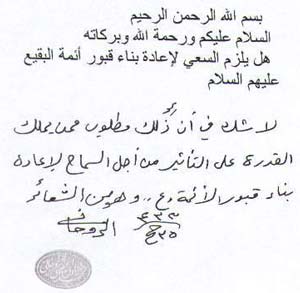 بسم الله الرحمن الرحيم
السلام عليكم ورحمة الله وبركاته
هل يلزم السعي لإعادة بناء قبور أئمة البقيع
عليهم السلام
لا شك في أن ذلك مطلوب ممن يملك
القدرة على التأثير من أجل السماح لإعادة
بناء قبور الأئمة (ع) .. وهو من الشعائر